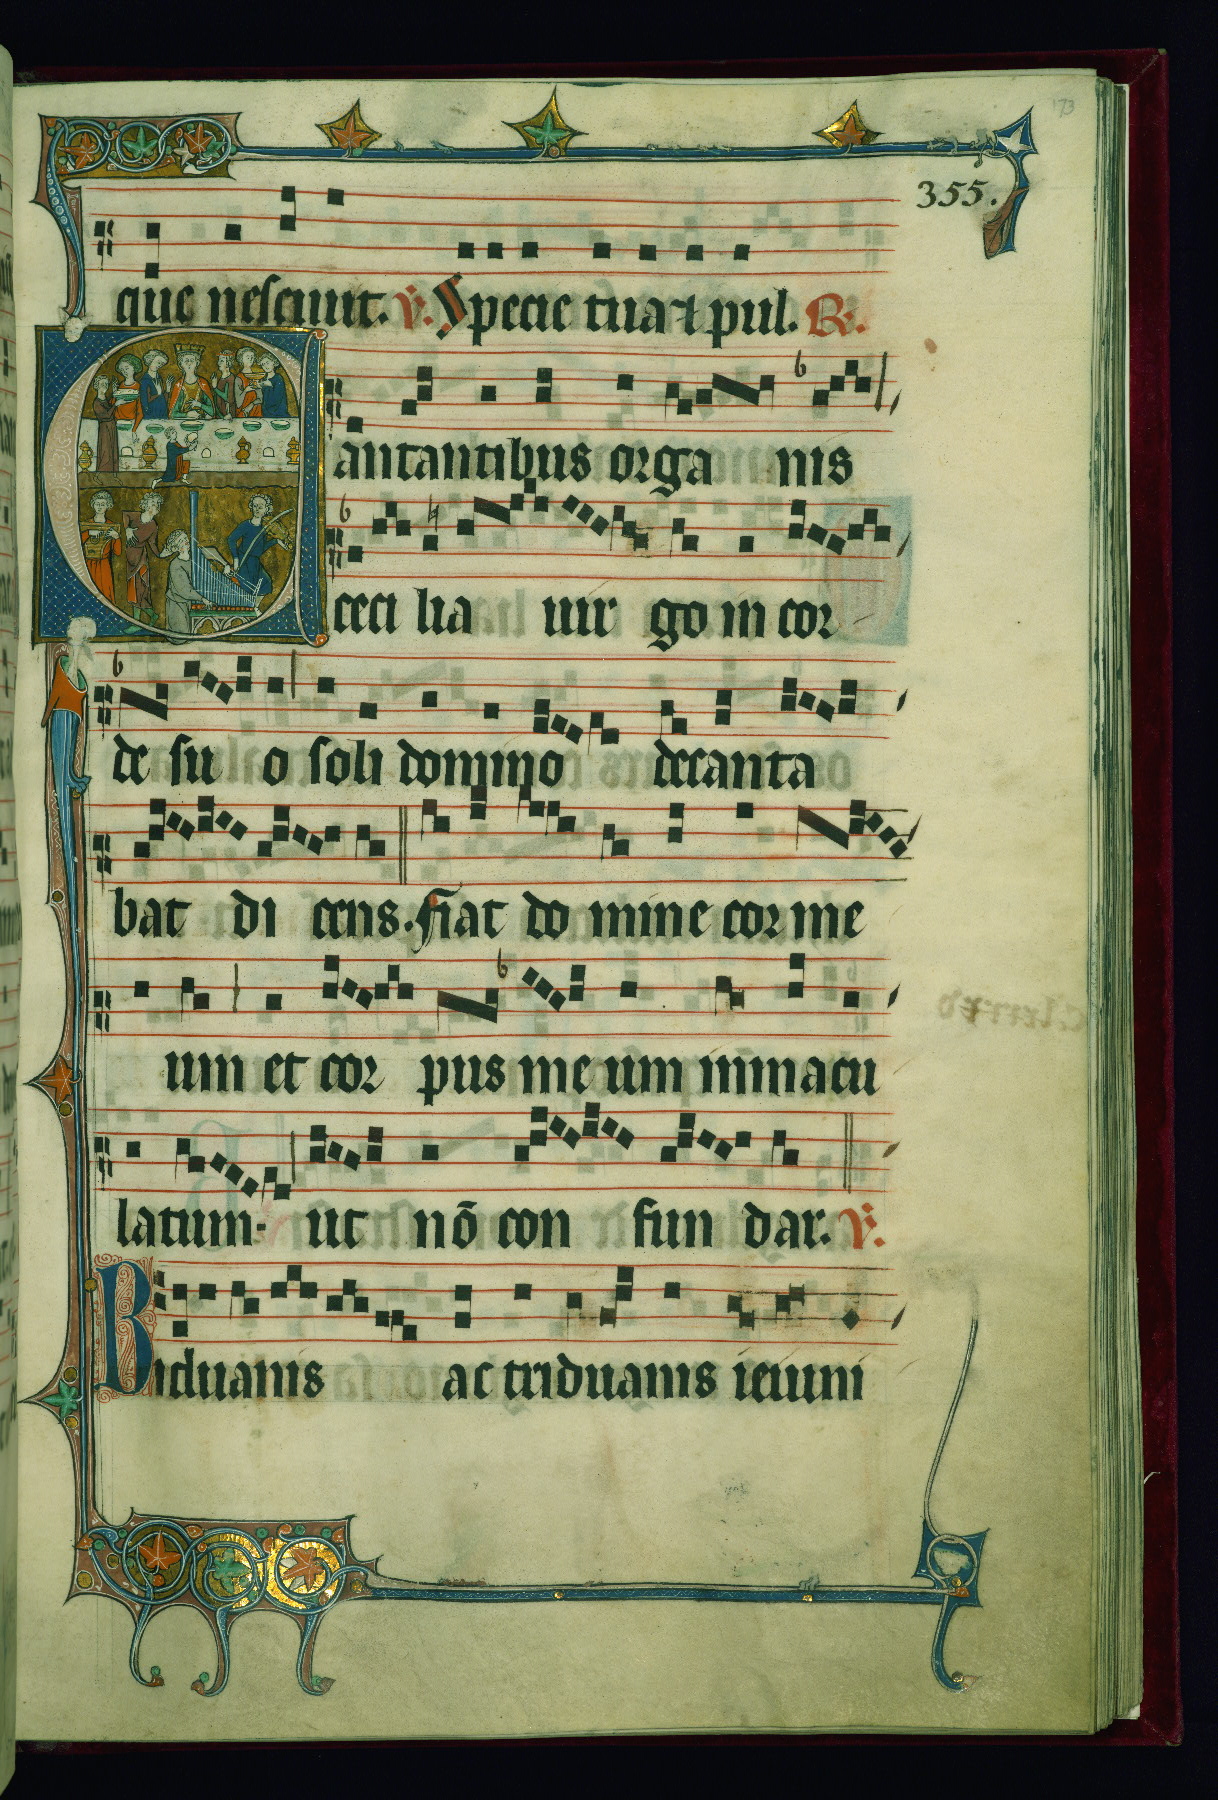 173
355.
que nesciuit. ℣. Specie tua ⁊ pul. ℟.
Cantantibus orga nis
ceci lia uir go in cor
de su o soli domino decanta
bat di cens. Fiat do mine cor me
um et cor pus me um inmacu
latum. ut nō con fun dar. ℣.
Biduanis ac triduanis ieiuni